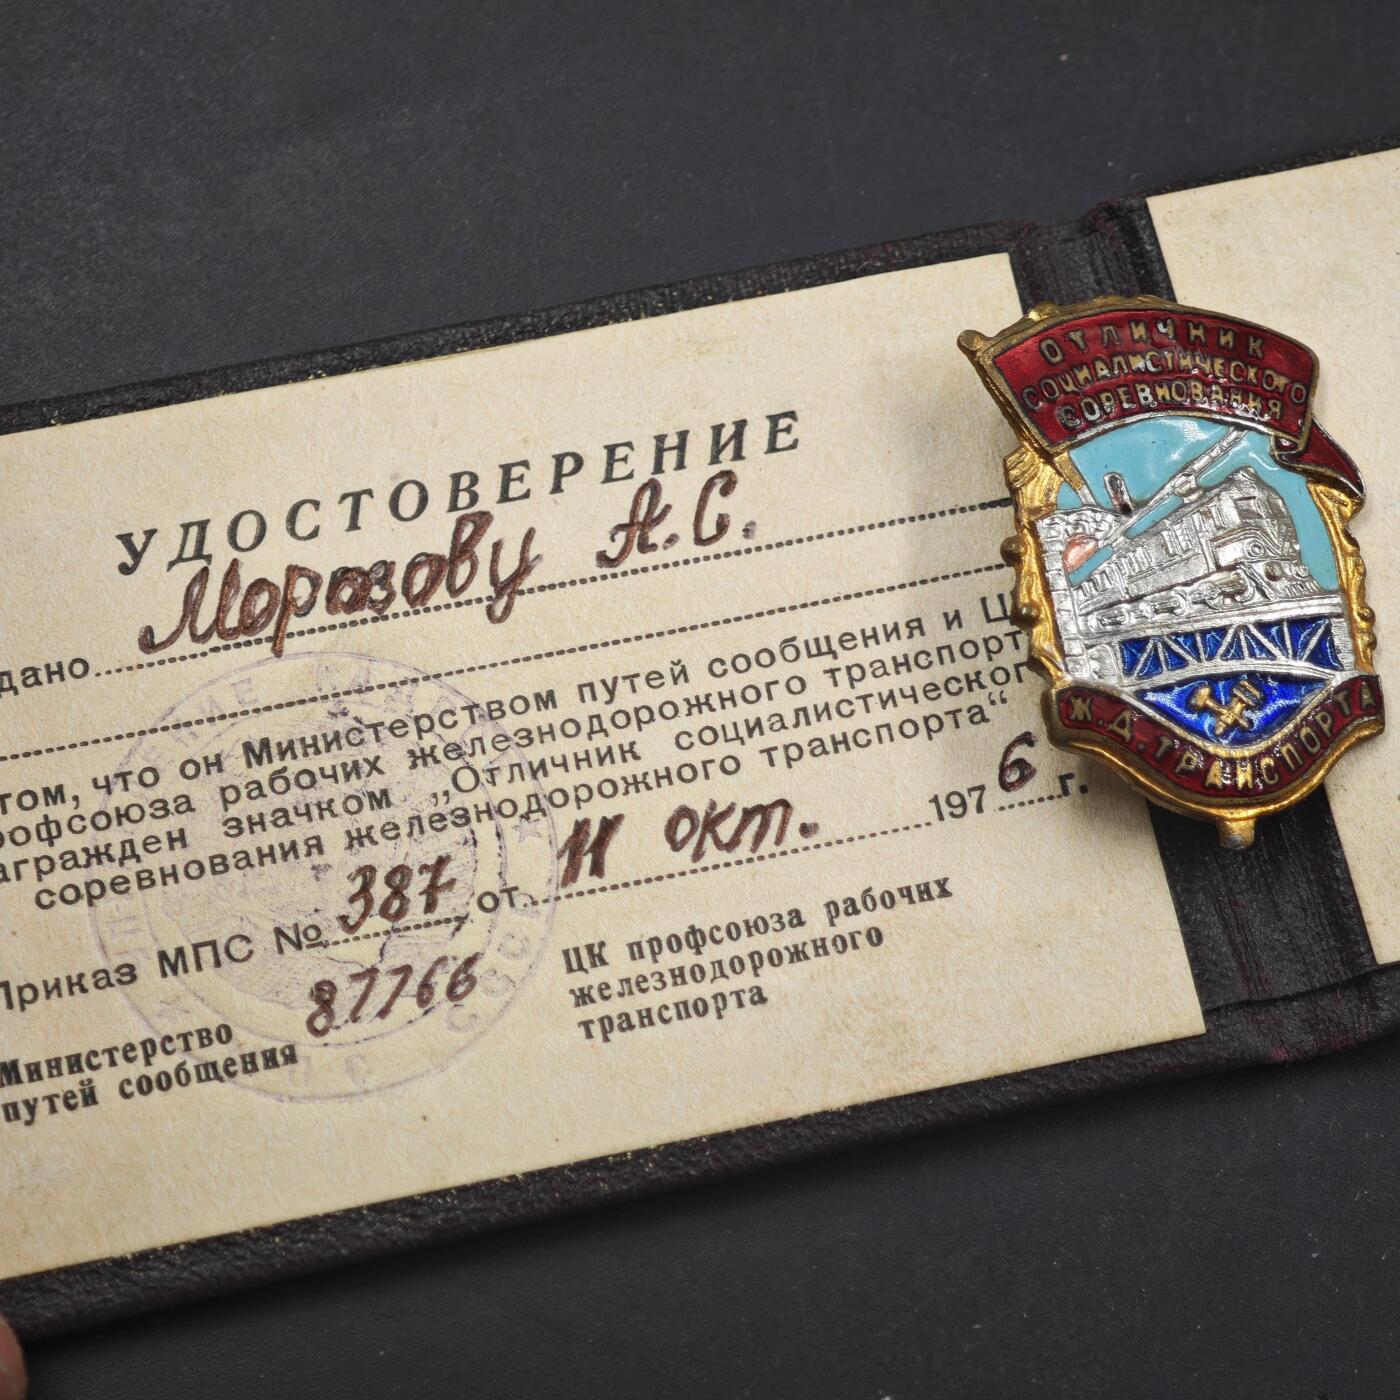 УДОСТОВЕРЕНИЕ
дано Морозову А.С.
том, что он Министерством путей сообщения и Ц
рофсоюза рабочих железнодорожного транспорт
агражден значком „Отличник социалистическог
соревнования железнодорожного транспорта“
Приказ МПС № 387 от 11 окт. 1976 г.
87766
Министерство
путей сообщения
ЦК профсоюза рабочих
железнодорожного
транспорта
ОТЛИЧНИК
СОЦИАЛИСТИЧЕСКОГО
СОРЕВНОВАНИЯ
Ж.Д.ТРАНСПОРТА